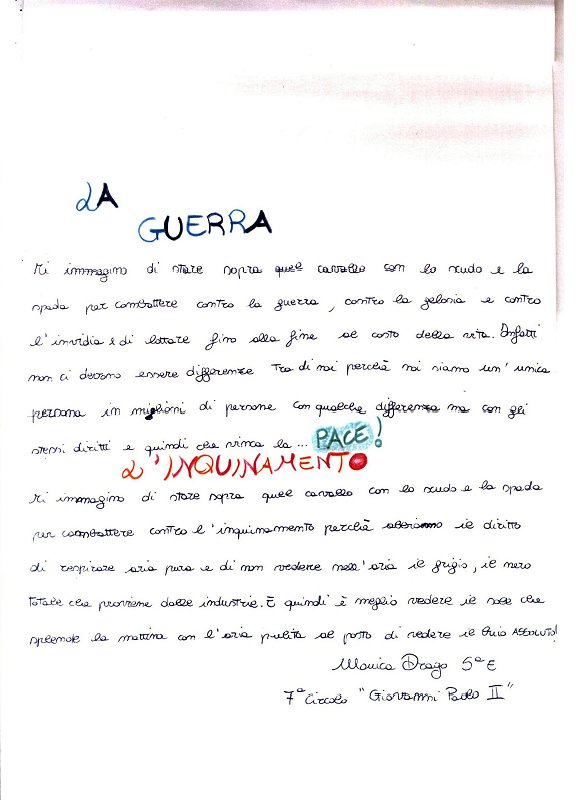 LA
GUERRA
Mi immagino di stare sopra quel cavallo con lo scudo e la
spada per combattere contro la guerra, contro la gelosia e contro
l'invidia e di lottare fino alla fine al costo della vita. Infatti
non ci devono essere differenze tra di noi perchè noi siamo un'unica
persona in miglioni di persone con qualche differenza ma con gli
stessi diritti e quindi che vinca la ... PACE!
L'INQUINAMENTO
Mi immagino di stare sopra quel cavallo con lo scudo e la spada
per combattere contro l'inquinamento perchè abbiamo il diritto
di respirare aria pura e di non vedere nell'aria il grigio, il nero
totale che proviene dalle industrie. E quindi è meglio vedere il sole che
splende la mattina con l'aria pulita al posto di vedere il buio ASSOLUTO!
Monica Drago 5ª E
7ª Circolo "Giovanni Paolo II"